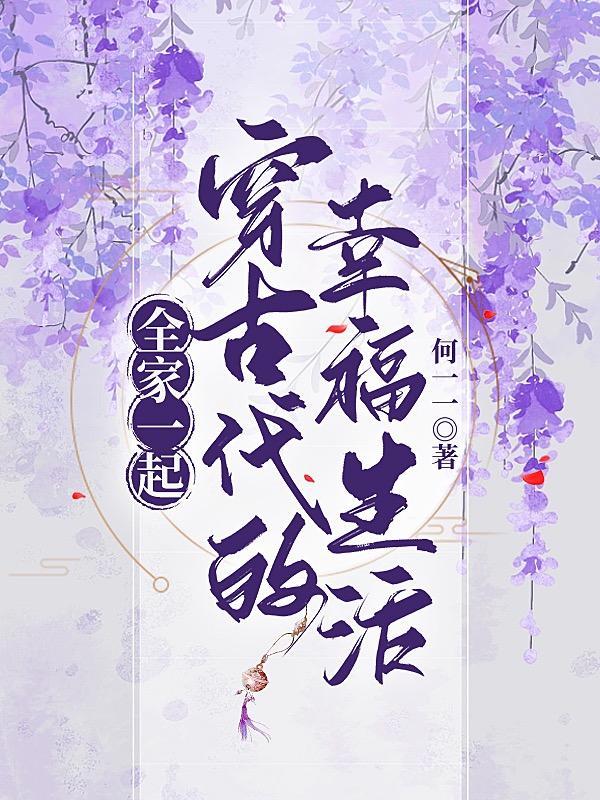 全家一起
穿古代的
幸福生活
何一一◎著